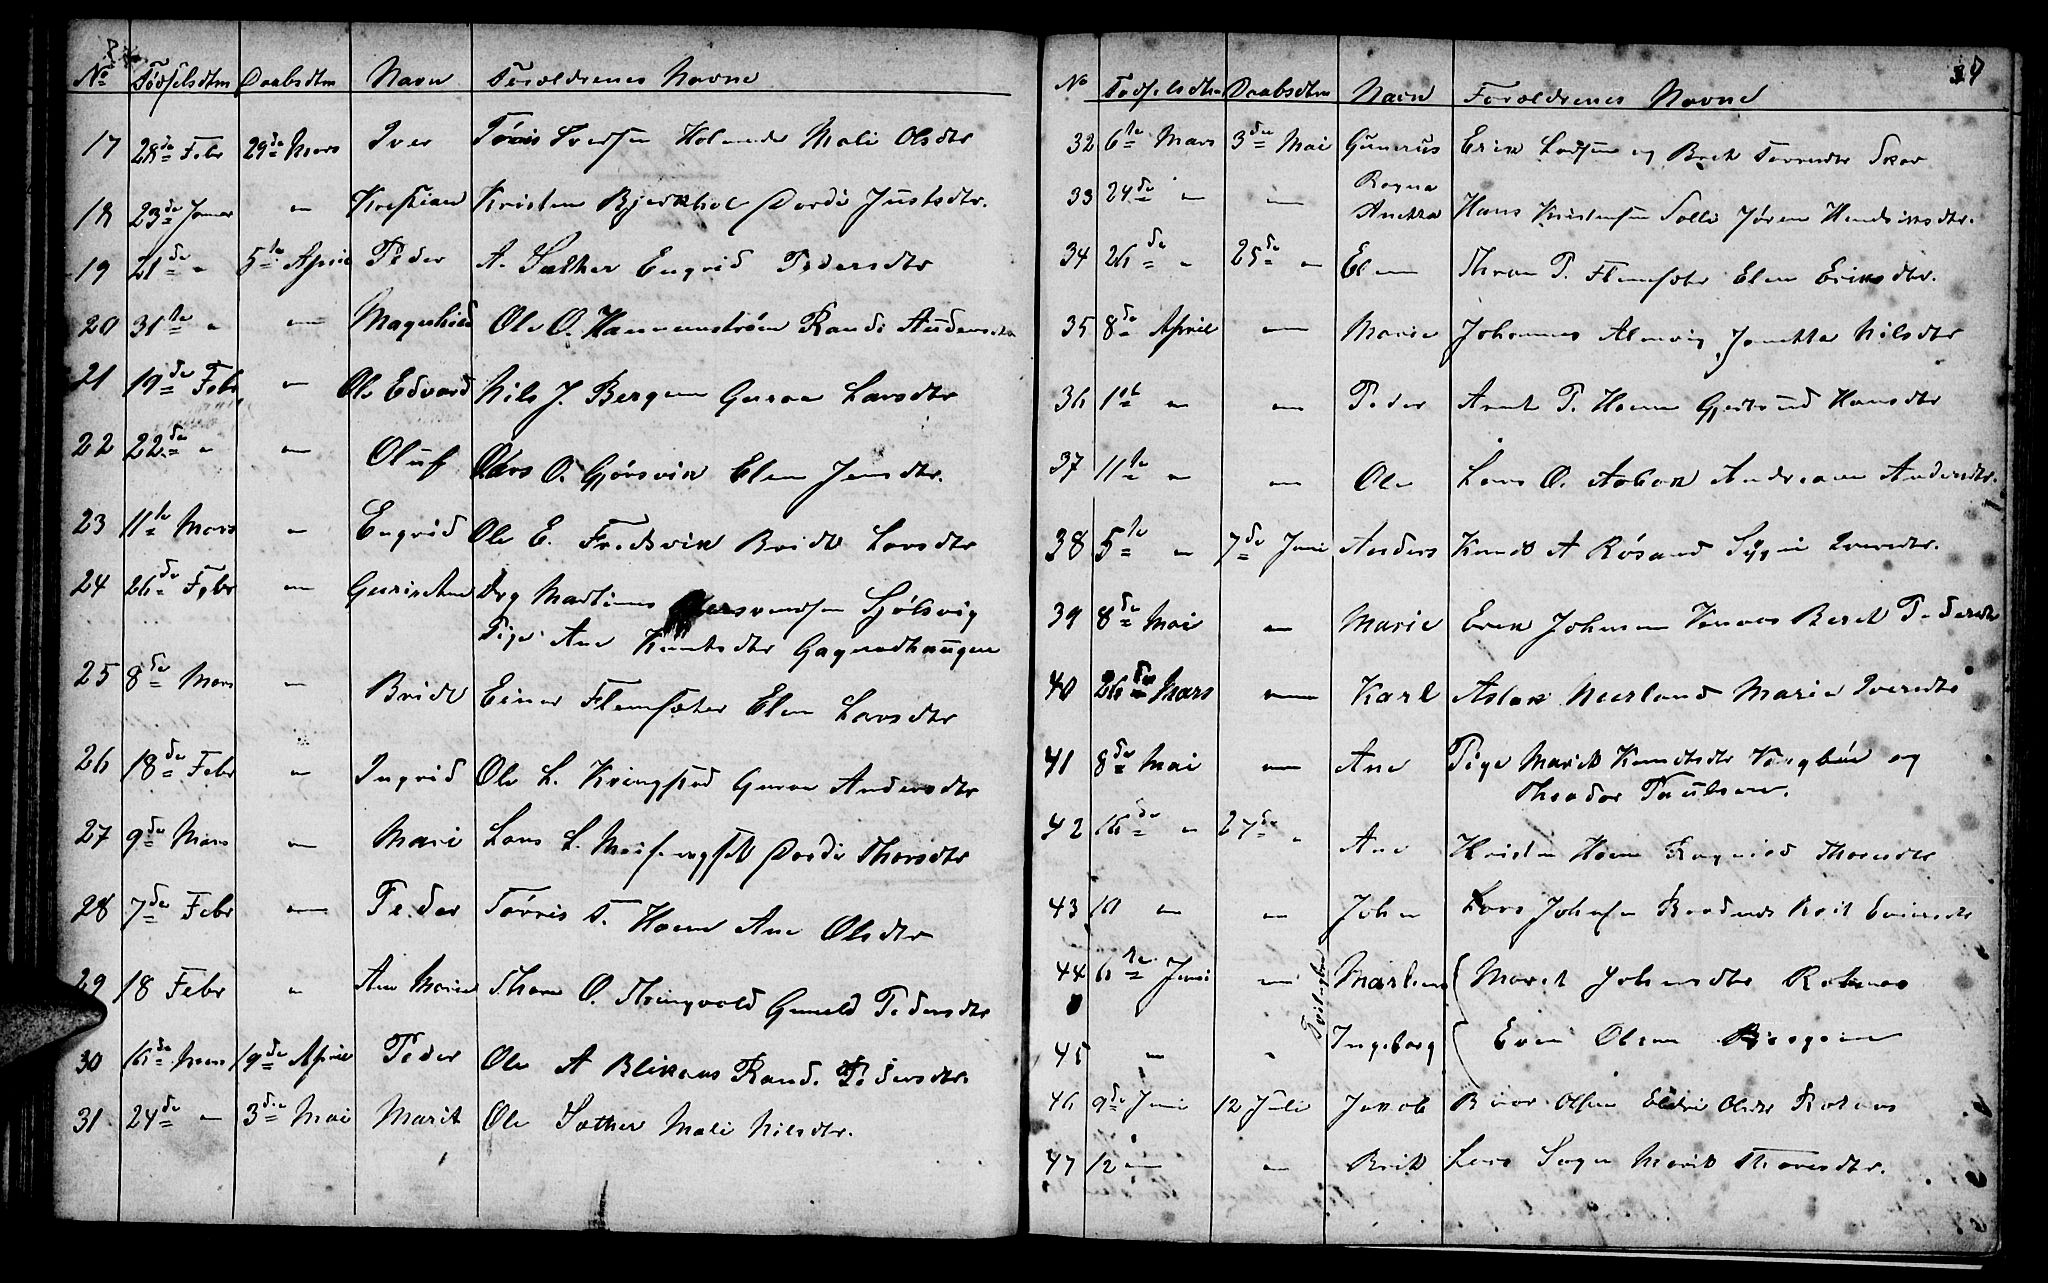 No Fødselsdtm Daabsdtm Navn Forældrenes Navne
17 28de Febr 29de Mars Iver Tørris Iversen Holmede Mali Olsdtr
18 23de Januar " Kristian Kristen Bjerkhol Dordi Justsdtr.
19 21de " 5te April Peder A. Sæther Engrid Pedersdtr
20 31te " " Magnhild Ole O. Hammerstrøm Randi Andersdtr
21 19de Febr " Ole Edvard Nils J. Bergem Guroe Larsdtr
22 22de " " Oluf Lars O. Gjørsvik Elen Jensdtr.
23 11te Mars " Engrid Ole E. Fredsvik Bridt Larsdtr
24 26de Febr " Guri Ane Drg Martines Sjølsvig
Pige Ane Knutsdtr Gagnadhaugen
25 8de Mars " Bridt Einar Flemsæter Elen Larsdtr
26 18de Febr " Ingrid Ole L. Kringstad Guroe Andersdtr
27 9de Mars " Mari Lars L. Meisingset Dordi Thorsdtr
28 7de Febr " Peder Tørris T. Hoem Ane Olsdtr
29 18 Febr " Ane Marie Thore O. Thringvold Gunild Pedersdtr
30 16de Mars 19de April Peder Ole A Blikaas Randi Pedersdtr.
31 24de " 3die Mai Marit Ole Sæther Mali Nilsdtr.
37
No Fødselsdtm Daabsdtm Navn Forældrenes Navne
32 6te Mars 3die Mai Gunerus Erik Ladsen og Brit Iversdtr
33 24de " " Ragna Anetta Hans Kristensen Solli Jøren Hendriksdtr.
34 26de " 25de " Elen Thron P. Flemsæter Elen Eriksdtr.
35 8de April " Marie Johannes Alnevig Janetta Nilsdtr
36 1ste " " Peder Arnt P. Hoem Gjertrud Hansdtr
37 11te " " Ole Lars O. Aasbak Andreane Andersdtr.
38 5te " 7de Juni Anders Knudt A Røsand Siggri Iversdtr.
39 8de Mai " Marie Even Johnsen Beret Pedersdtr
40 26de Mars " Karl Aslak Neerland Maria Iversdtr
41 8de Mai " Ane Pige Marit Knudtsdtr Vaagbøe og
Theodor Paulsen.
42 16de " 27de " Ane Kristen Hoem Ragnild Thoresdtr
43 10 " " John Lars Johnsen
44 6te Juni " Tvillingbørn Marlene Marit Johnsdtr Roknes
45 " " Ingeborg Even Olsen Bergem
46 9de Juni 12 Juli Jakob Olsen Olsdtr
47 12 " " Brit Lars Marit Thoresdtr.